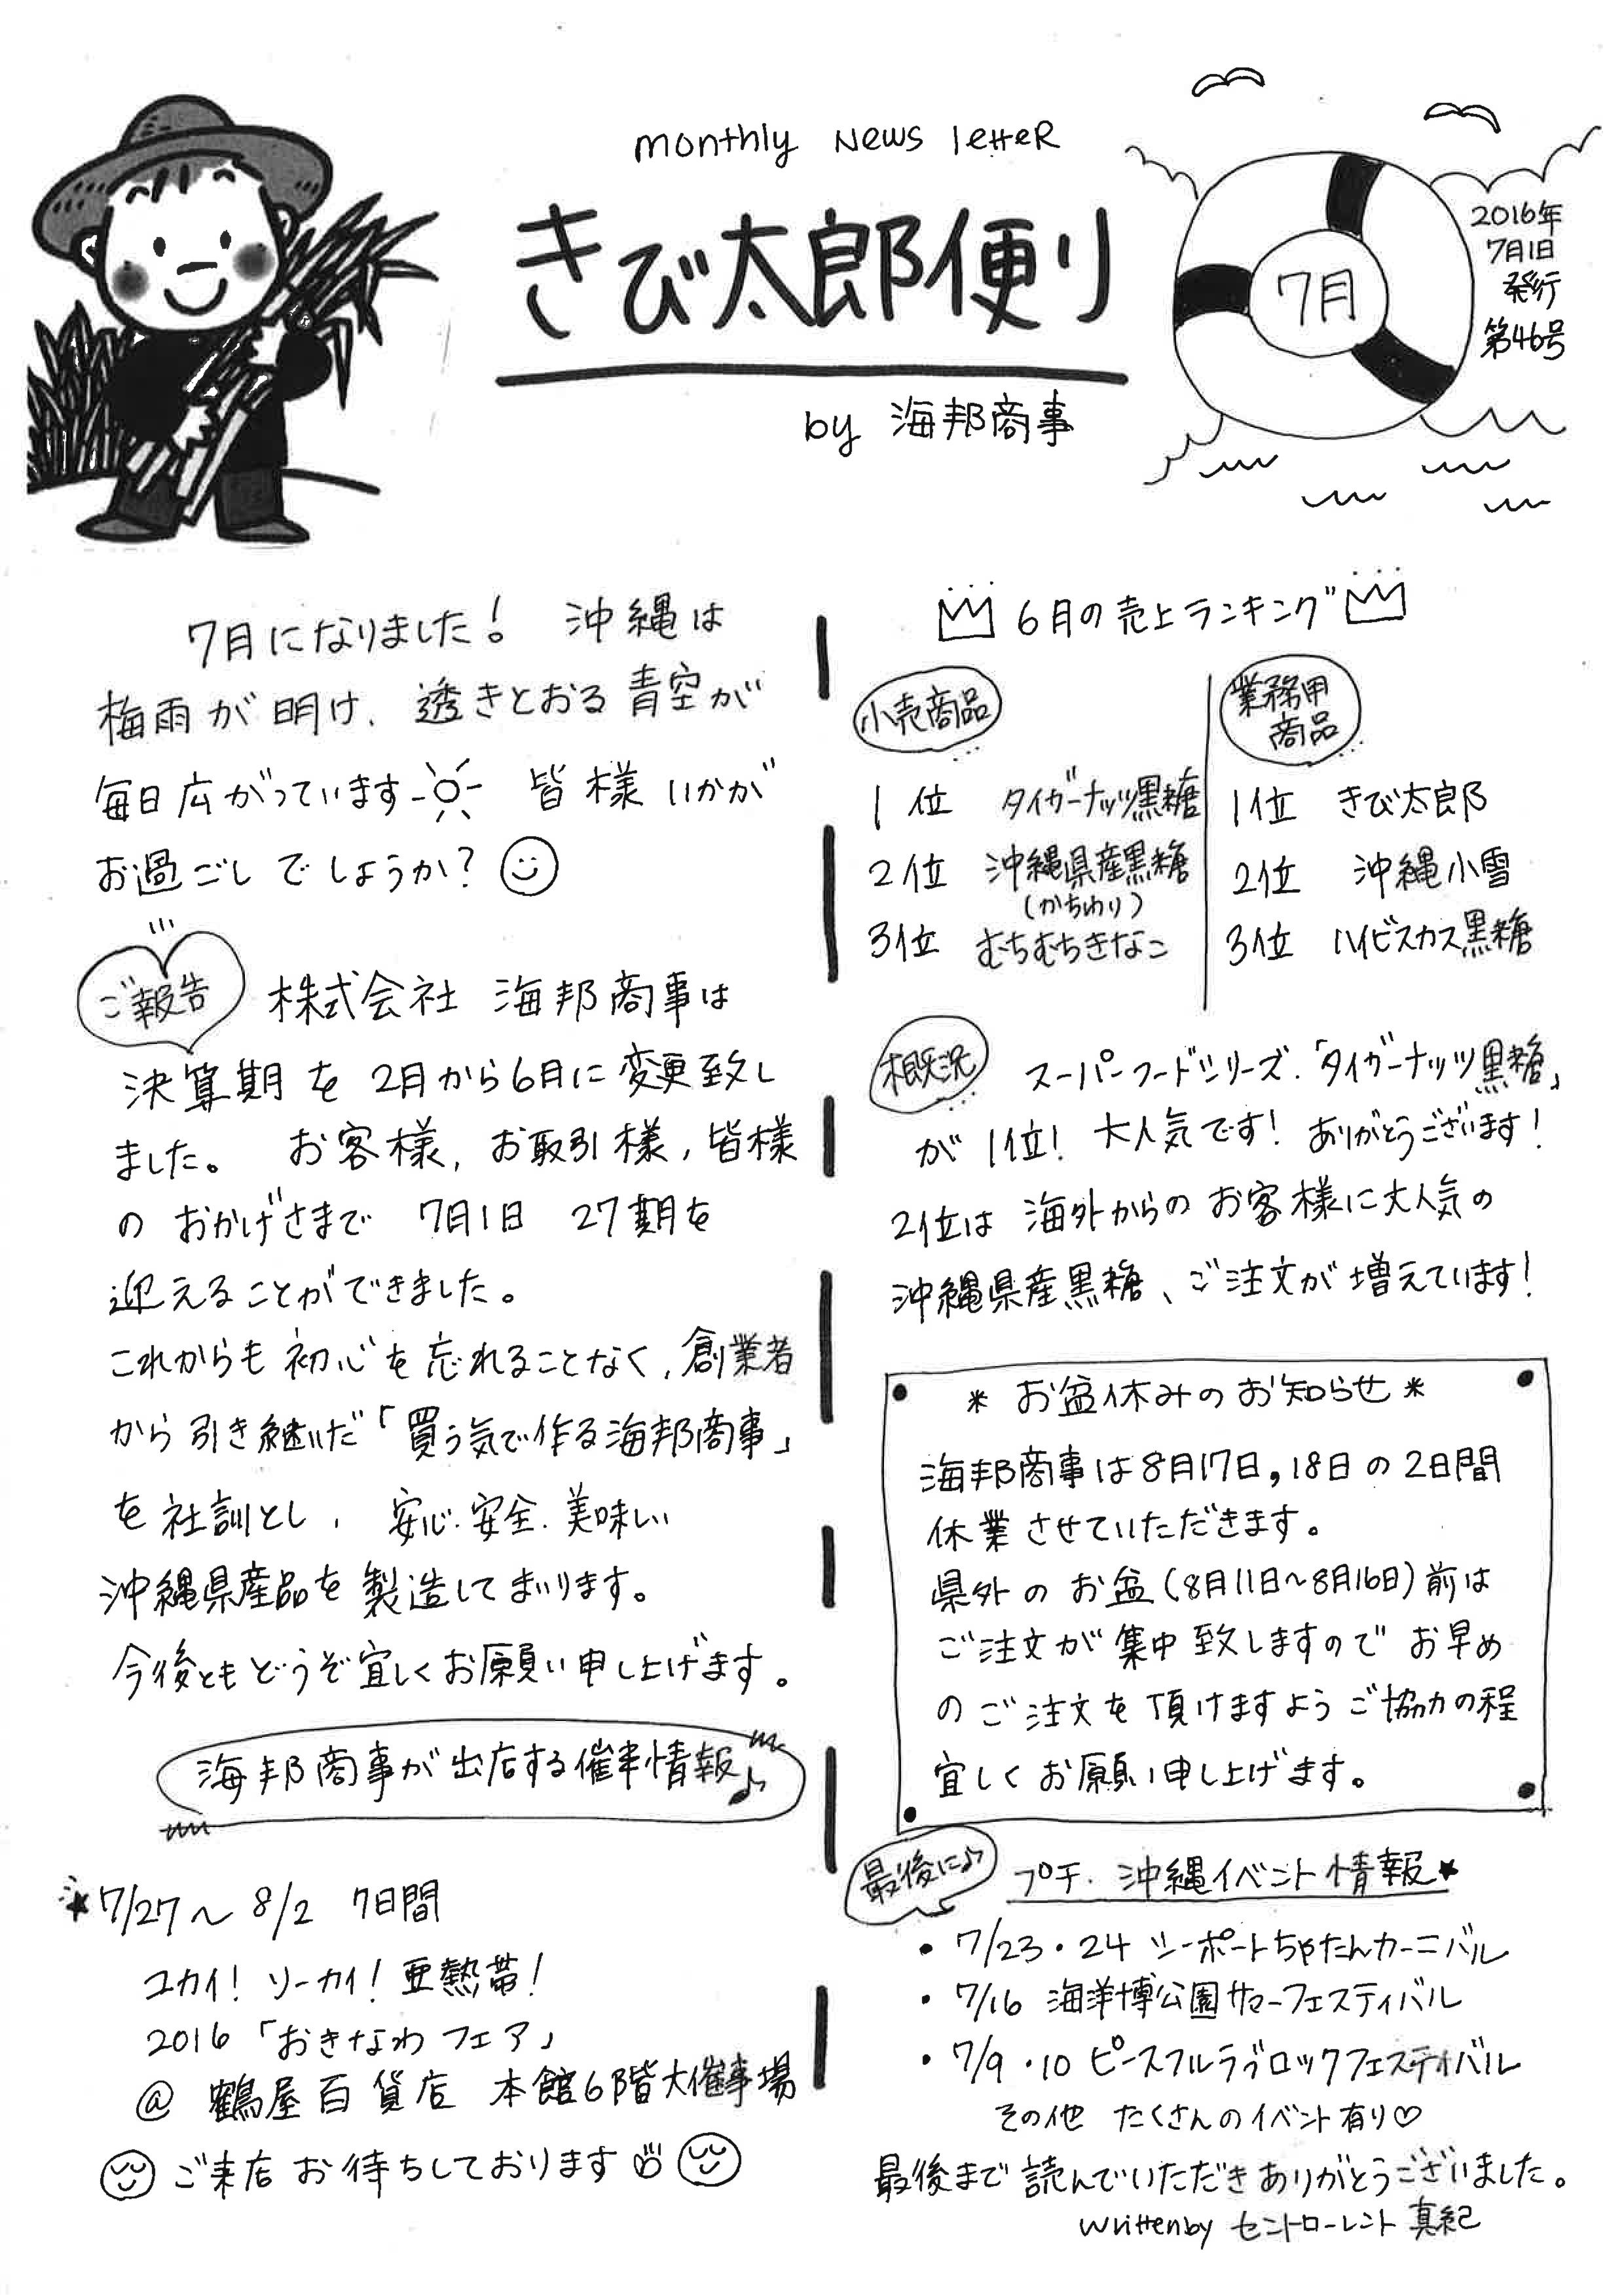 monthly News letter
きび太郎便り
by 海邦商事
7月
2016年
7月1日
発行
第46号
7月になりました! 沖縄は
梅雨が明け、透きとおる青空が
毎日広がっています 皆様いかが
お過ごしでしょうか?
ご報告 株式会社 海邦商事は
決算期を2月から6月に変更致し
ました。 お客様, お取引様, 皆様
の おかげさまで 7月1日 27期を
迎えることができました。
これからも初心を忘れることなく, 創業者
から引き継いだ「買う気で作る海邦商事」
を社訓とし, 安心.安全.美味しい
沖縄県産品を製造してまいります。
今後ともどうぞ宜しくお願い申し上げます。
海邦商事が出店する催事情報♪
★7/27～8/2 7日間
ユカイ! ソーカイ! 亜熱帯!
2016「おきなわフェア」
@ 鶴屋百貨店 本館6階大催事場
ご来店お待ちしております
6月の売上ランキング
小売商品
1位 タイガーナッツ黒糖
2位 沖縄県産黒糖
(かちわり)
3位 むちむちきなこ
業務用
商品
1位 きび太郎
2位 沖縄小雪
3位 ハイビスカス黒糖
概況 スーパーフードシリーズ.「タイガーナッツ黒糖」
が1位! 大人気です! ありがとうございます!
2位は 海外からのお客様に大人気の
沖縄県産黒糖、ご注文が増えています!
* お盆休みのお知らせ *
海邦商事は8月17日,18日の2日間
休業させていただきます。
県外のお盆(8月11日～8月16日)前は
ご注文が集中致しますのでお早め
のご注文を頂けますようご協力の程
宜しくお願い申し上げます。
最後に♪ プチ.沖縄イベント情報★
・7/23・24 シーポートちゃたんカーニバル
・7/16 海洋博公園サマーフェスティバル
・7/9・10 ピースフルラブロックフェスティバル
その他 たくさんのイベント有り♡
最後まで読んでいただきありがとうございました。
written by セントローレント 真紀